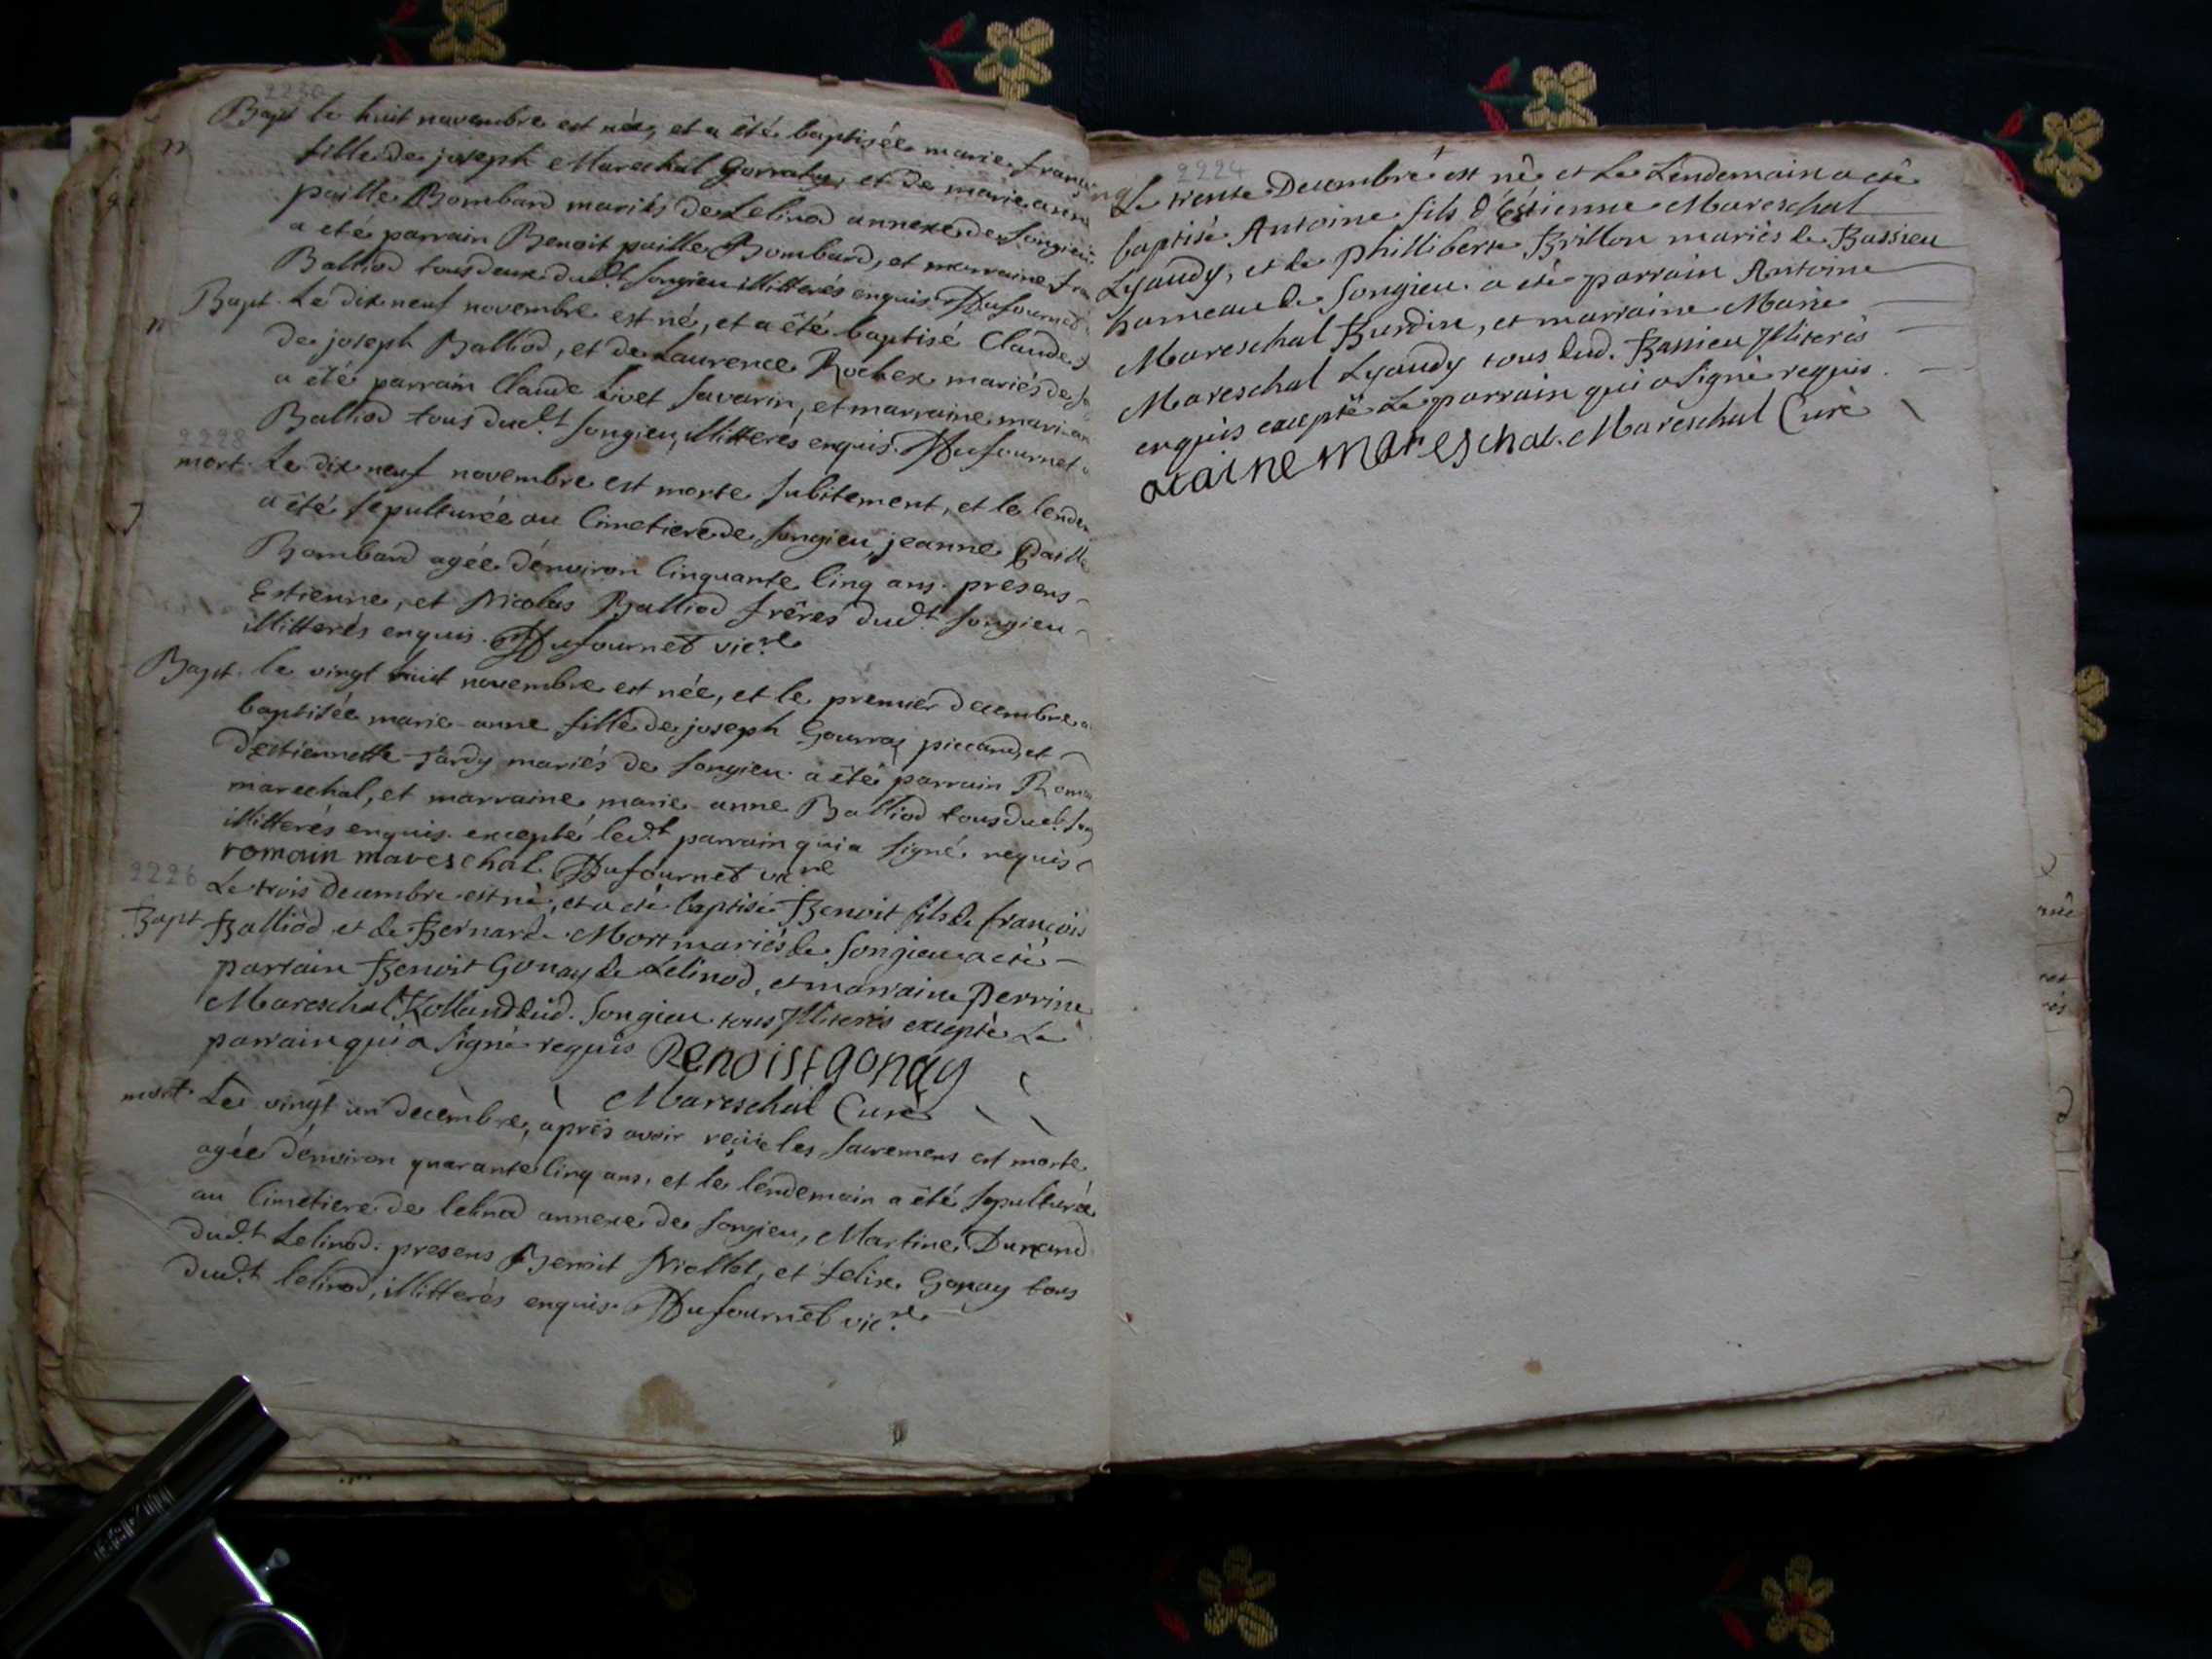 2230
Bapt le huit novembre est née, et a été baptisée marie franç
fille de joseph Marechal Gorraty, et de marie anne
paille Bombard mariés de Lelinod annexe de songieu
a eté parrain Benoit paille Bombard, et marraine fran
Balliod tous deux dud.t songieu illitterés enquis. Dufournet
Bapt. Le dix neuf novembre est né, et a été baptisé Claude
de joseph Balliod, et de Laurence Rochex mariés de
a été parrain Claude Livet savarin, et marraine mari-an
Balliod tous dud.t songieu, illitterés enquis. Dufournet
2228
mort. Le dix neuf novembre est morte subitement, et le lende
a été sepulturée au Cimetiere de songieu, jeanne Paille
Bombard agée d'environ cinquante cinq ans. presens
Estienne, et Nicolas Balliod frêres dud.t songieu
illitterés enquis. Dufournet vic.re
Bapt. le vingt huit novembre est née, et le premier decembre a
baptisée marie-anne fille de joseph Gourraz piccand, et
d'estiennette jardy mariés de songieu. a été parrain Roma
marechal, et marraine marie-anne Balliod tous dud.t son
illitterés enquis. excepté led.t parrain qui a signé requis
romain mareschal. Dufournet vic.re
2226
Le trois decembre est né, et a eté baptisé Benoit fils de françois
Bapt Balliod et de Bernarde Mort mariés de songieu a eté
parrain Benoit Gonay de Lelinod, et marraine Perrine
Mareschal Rolland dud. songieu tous Illiterés excepté Le
parrain qui a signé requis Benoist gonay
Mareschal Curé
mort. Le vingt un decembre, après avoir reçüe les sacremens est morte
agée d'environ quarante cinq ans, et le lendemain a été sepulturée
au Cimetiere de lelinod annexe de songieu, Martine Durand
dud.t Lelinod. presens Benoit Niollet, et felix Gonay tous
dud.t lelinod, illitterés enquis. Dufournet vic.re
2224
Le trente Decembre est né et Le Lendemain a eté
baptisé Antoine fils d'Estienne Mareschal
Lyaudy, et de Philliberte Brillon mariés de Bassieu
hameau de Songieu. a eté parrain Antoine
Mareschal Burdin, et marraine Marie
Mareschal Lyaudy tous dud. Bassieu Illiterés
enquis excepté Le parrain qui a signé requis.
mareschal. Mareschal Curé